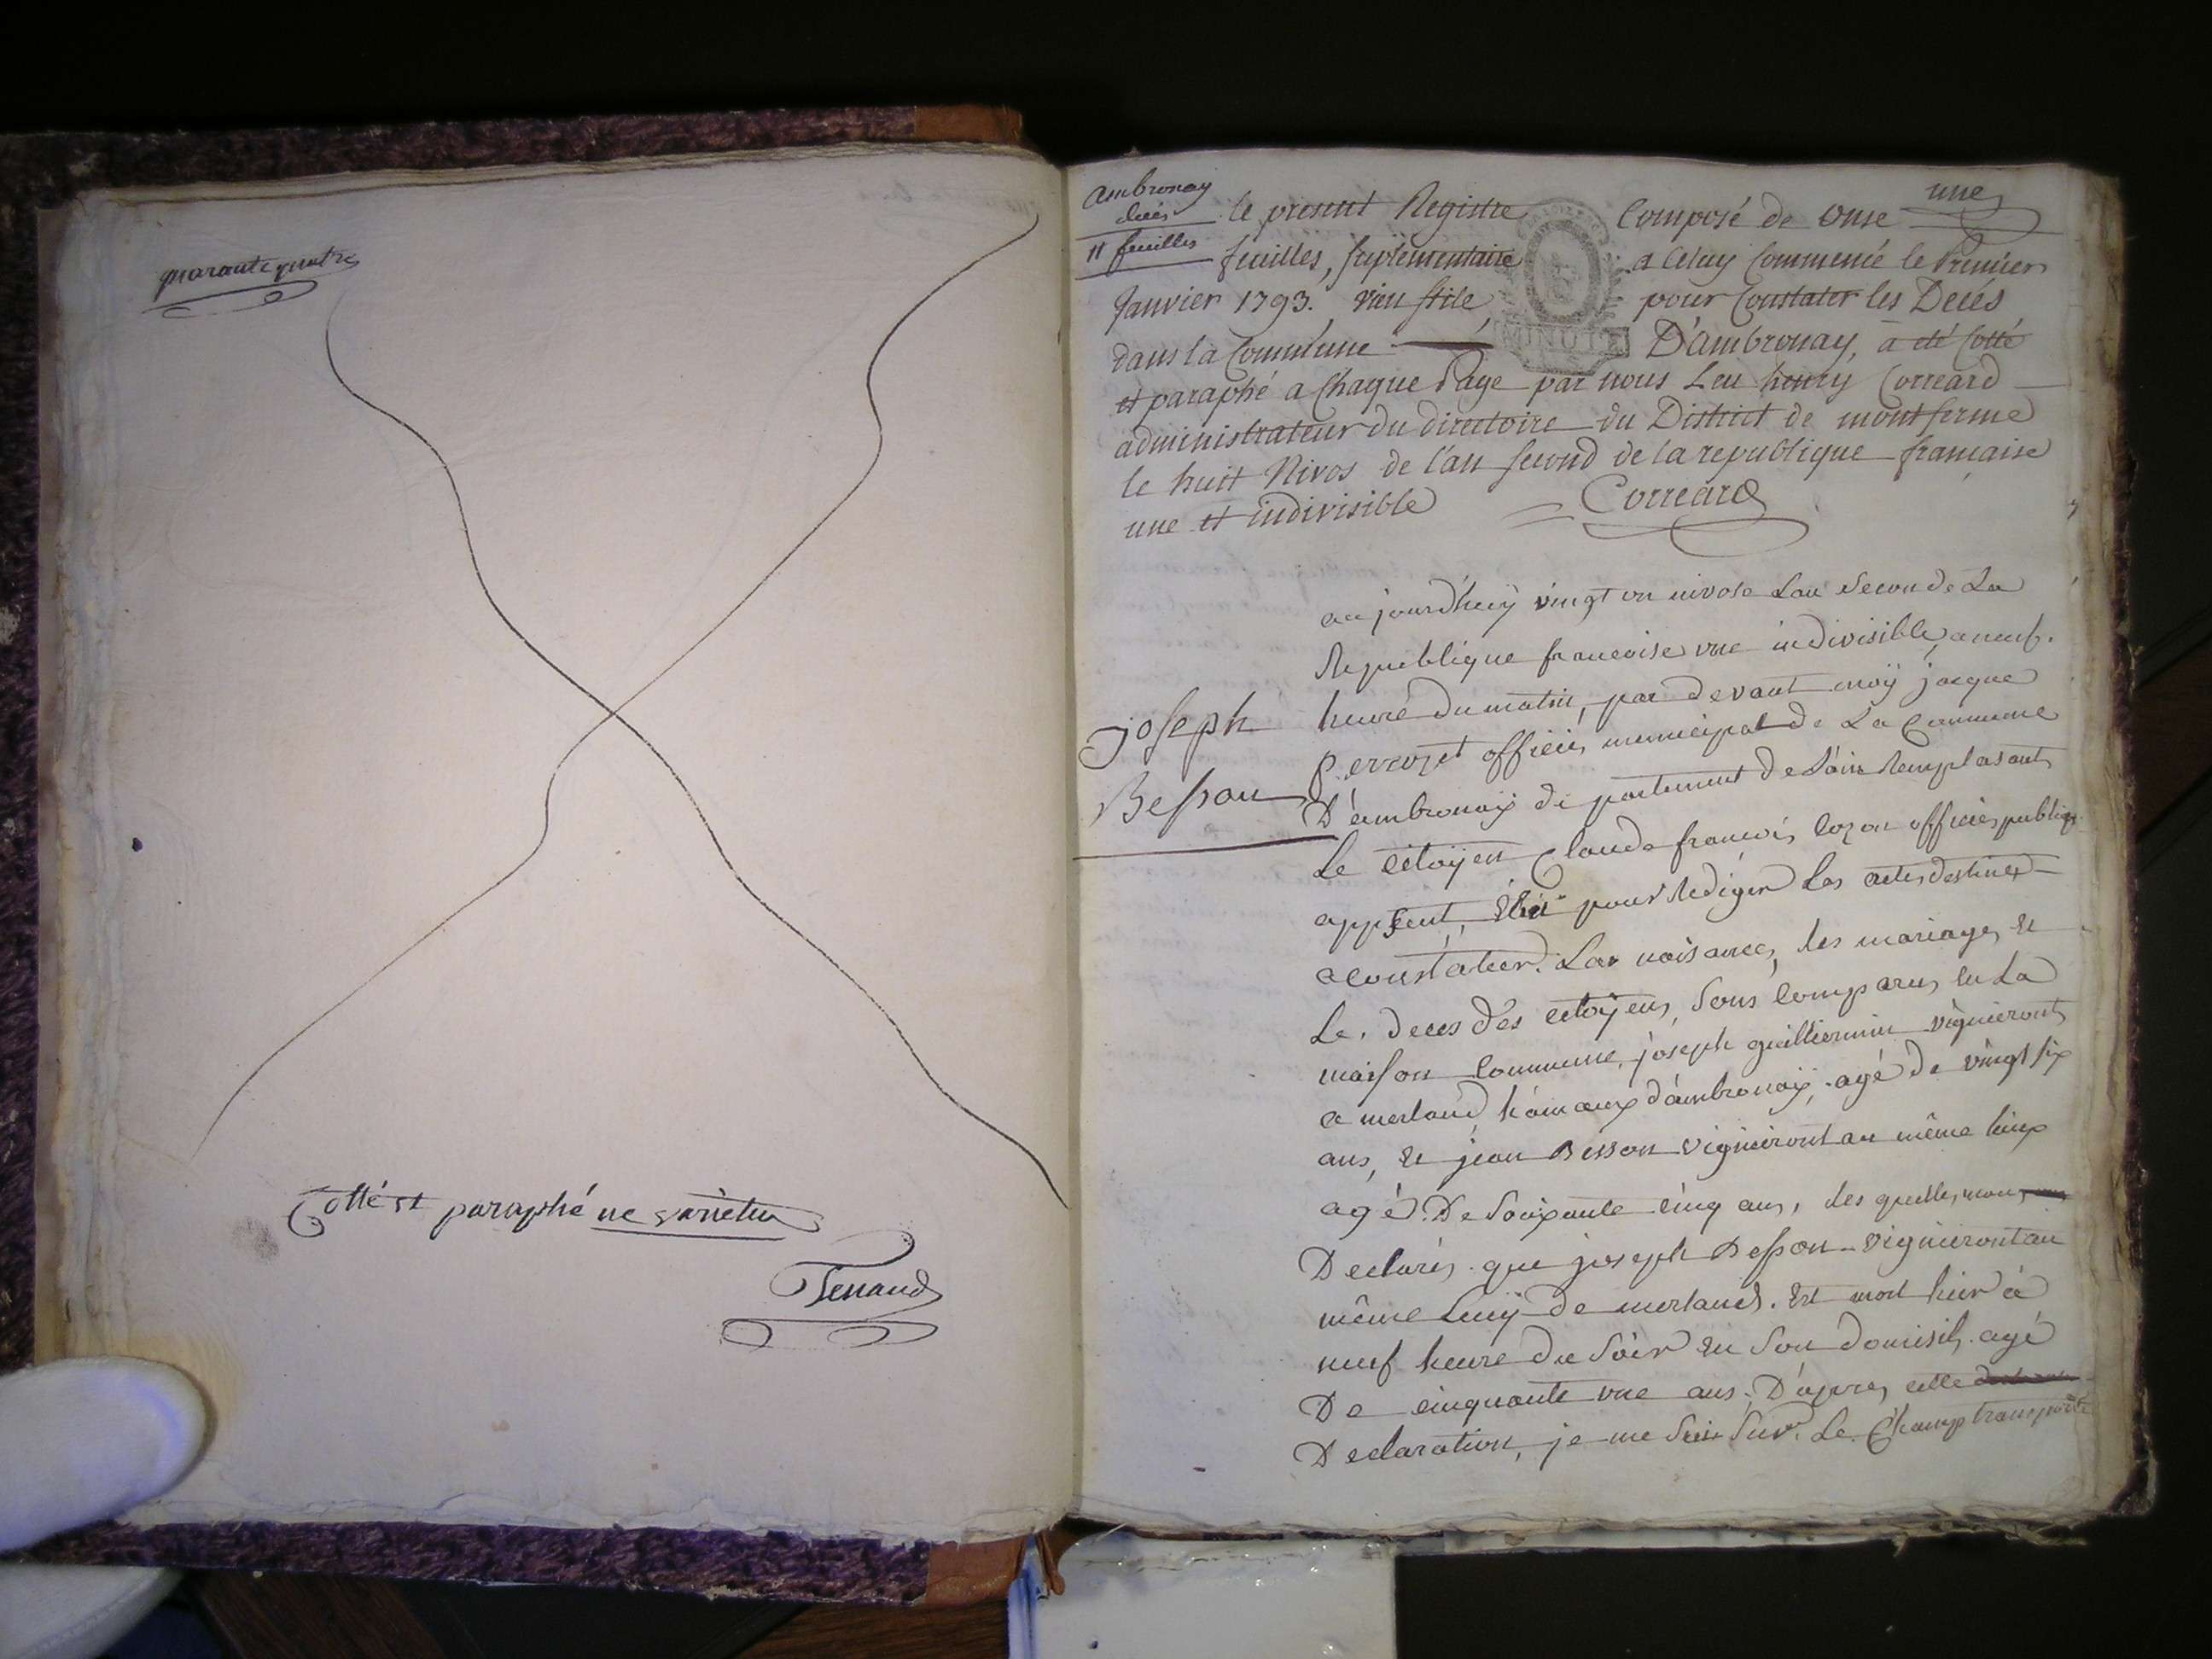 quarante quatre
Cotté et paraphé ne varietur
Tenand
ambronay
décés
11 feuilles
une
le présent Registre Composé de onse
feuilles, suplémentaire a Celuy Commencé le Premier
Janvier 1793. vieu stile, pour Constater les Decés
dans la Commune D'ambronay, a été Cotté
et paraphé a Chaque Page par nous Leu henry Correard
administrateur du directoire du District de montferme
le huit Nivos de l'an second de la republique française
une et indivisible Correard
MINUTE
Joseph
Besson
aujourd'huÿ vingt un nivose Lan Second de La
Republique francoise une indivisible, a neuf
heure du matin, par devant moÿ jacque
perrozet officié, municipal de La Commune
D'ambronaÿ de partement de L'ain Remplasant
Le citoÿen Claude francois lozon officiés publiq
élu pour Rediger Les actes destinés
a Constater Les naisances, les mariages et
Le deces des citoÿens, Sons Comparus en La
maison Commune, joseph guilliermin vigneront
a merland, hamaux d'ambronaÿ, agé de vingt six
ans, et jean Besson vigneront au même lieux
agé De Soixante cinq ans, les quelles, mon
Declarés que joseph Besson vigneront au
même Lieuÿ de merland. Est mort hier à
neuf heure du Soir en Son domisil, agé
De cinquante une ans, D'après cette
Declaration, je me Suis Sur Le Champ transporté